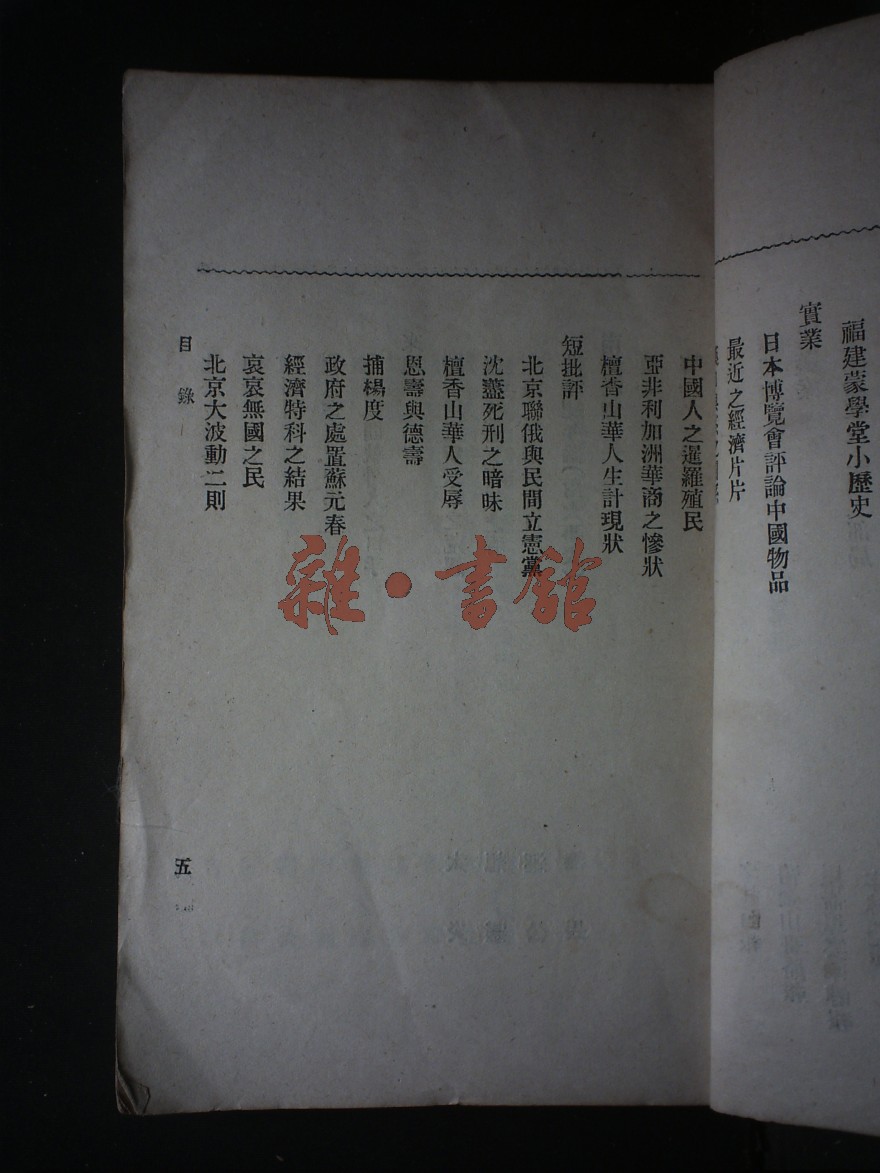 福建蒙學堂小歷史
實業
日本博覽會評論中國物品
最近之經濟片片
中國人之暹羅殖民
亞非利加洲華商之慘狀
檀香山華人生計現狀
短批評
北京聯俄與民間立憲黨
沈藎死刑之暗味
檀香山華人受辱
恩壽與德壽
捕楊度
政府之處置蘇元春
經濟特科之結果
哀哀無國之民
北京大波動二則
目錄
五
雜·書館